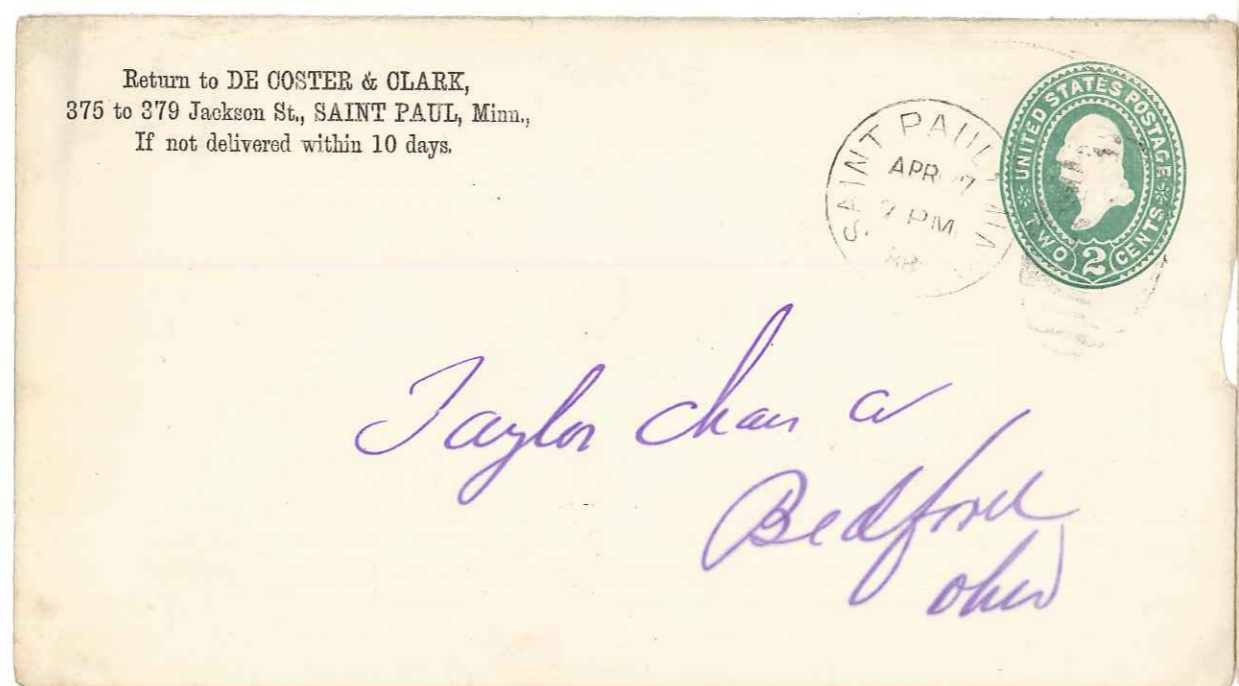 Return to DE COSTER & CLARK,
375 to 379 Jackson St., SAINT PAUL, Minn.,
If not delivered within 10 days.
SAINT PAUL,
APR 7
7 PM
88
UNITED STATES POSTAGE
TWO 2 CENTS
Taylor Chair Co
Bedford
Ohio